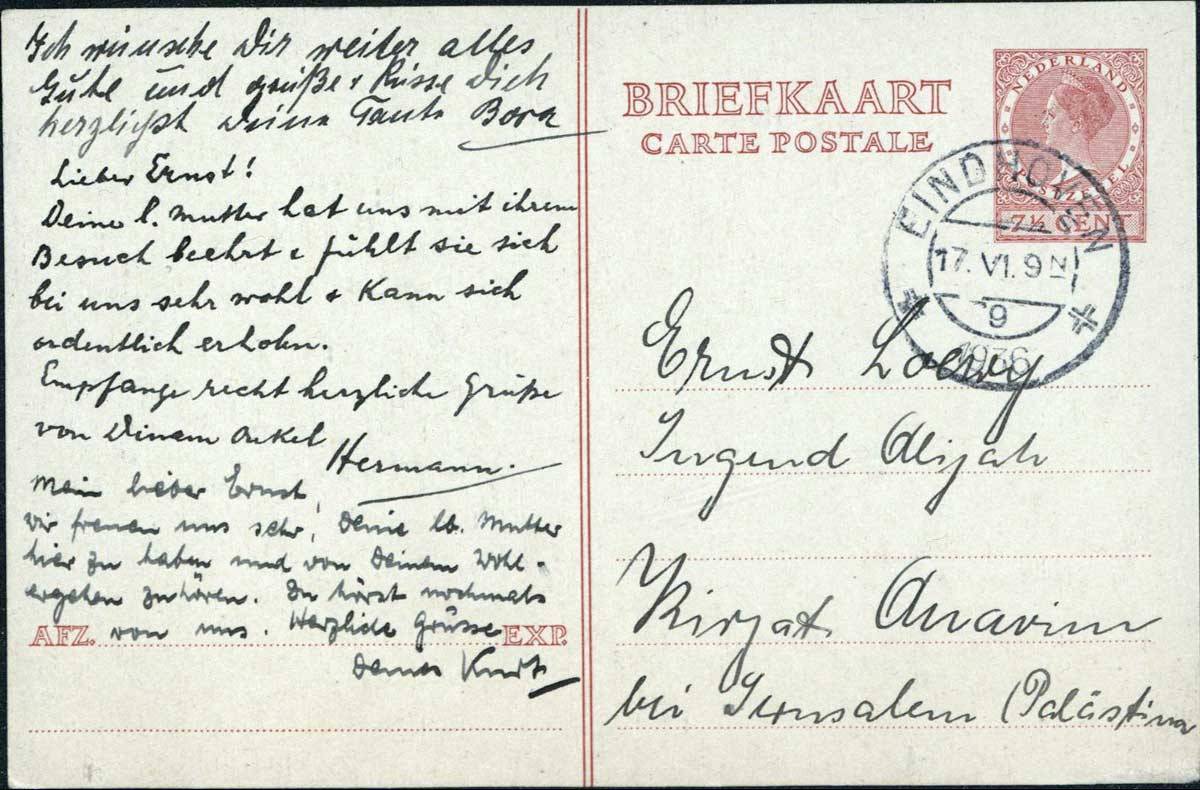 Ich wünsche Dir weiter alles
Gute und grüße & küsse Dich
herzlichst Deine Tante Dora
Lieber Ernst!
Deine l. Mutter hat uns mit ihrem
Besuch beehrt & fühlt sie sich
bei uns sehr wohl & kann sich
ordentlich erholen.
Empfange recht herzliche Grüße
von Deinem Onkel
Hermann.
Mein lieber Ernst,
wir freuen uns sehr, Deine lb. Mutter
hier zu haben und von Deinem Wohl-
ergehen zu hören. Du hörst nochmals
AFZ. von uns. Herzliche Grüsse EXP.
Deines Kurt
BRIEFKAART
CARTE POSTALE
NEDERLAND
POSTZEGEL
7½ CENT
EINDHOVEN
17. VI. 9 N
9
1936
Ernst Loewy
Jugend Alijah
Kirjat Anavim
bei Jerusalem (Palästina